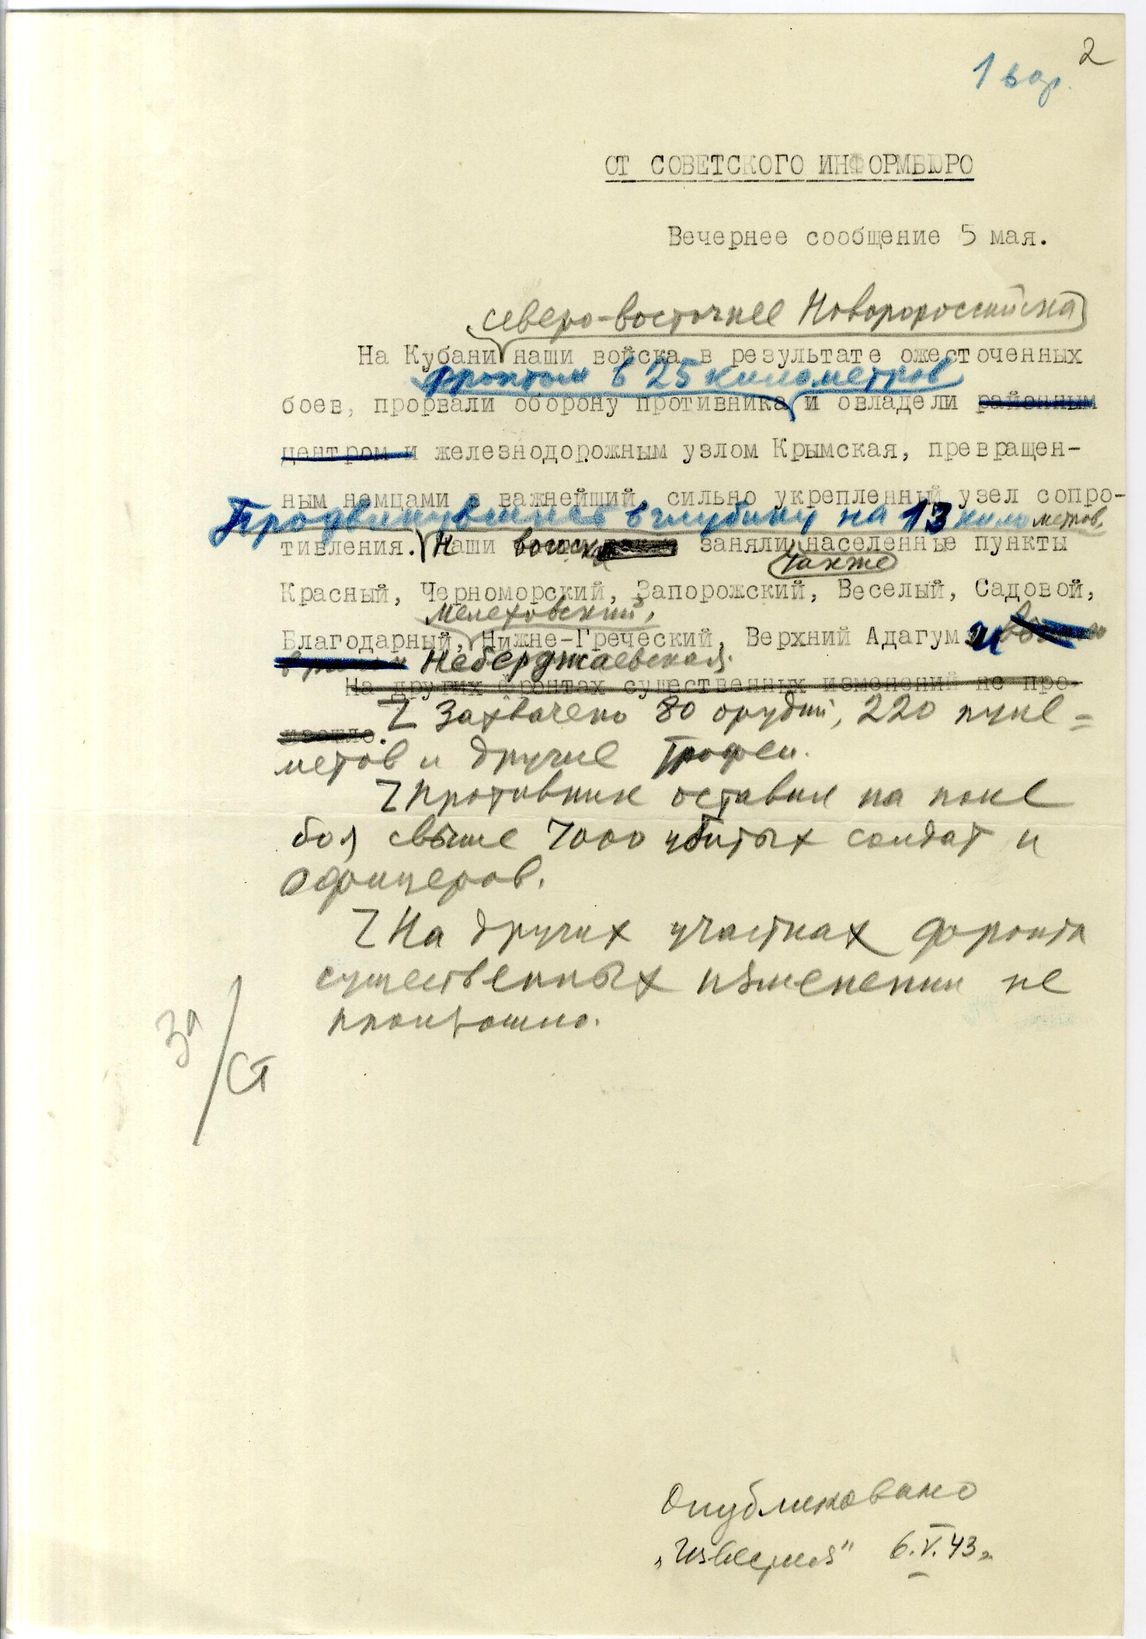 2
1 вар.
ОТ СОВЕТСКОГО ИНФОРМБЮРО
Вечернее сообщение 5 мая.
северо-восточнее Новоророссийска
На Кубани наши войска в результате ожесточенных
фронтом в 25 километров
боев, прорвали оборону противника и овладели районным
центром и железнодорожным узлом Крымская, превращен-
ным немцами в важнейший, сильно укрепленный узел сопро-
Продвинувшись в глубину на 13 километров,
тивления. Наши войска заняли населенные пункты
также
Красный, Черноморский, Запорожский, Веселый, Садовой,
Мелеховский,
Благодарный, Нижне-Греческий, Верхний Адагум и
Неберджаевская.
На других фронтах существенных изменений не про-
изошло.
Захвачено 80 орудий, 220 пуле=
метов и другие трофеи.
Противник оставил на поле
боя свыше 7000 убитых солдат и
офицеров.
На других участках фронта
существенных изменений не
произошло.
За/Ст
Опубликовано
„Известия" 6.V.43г.